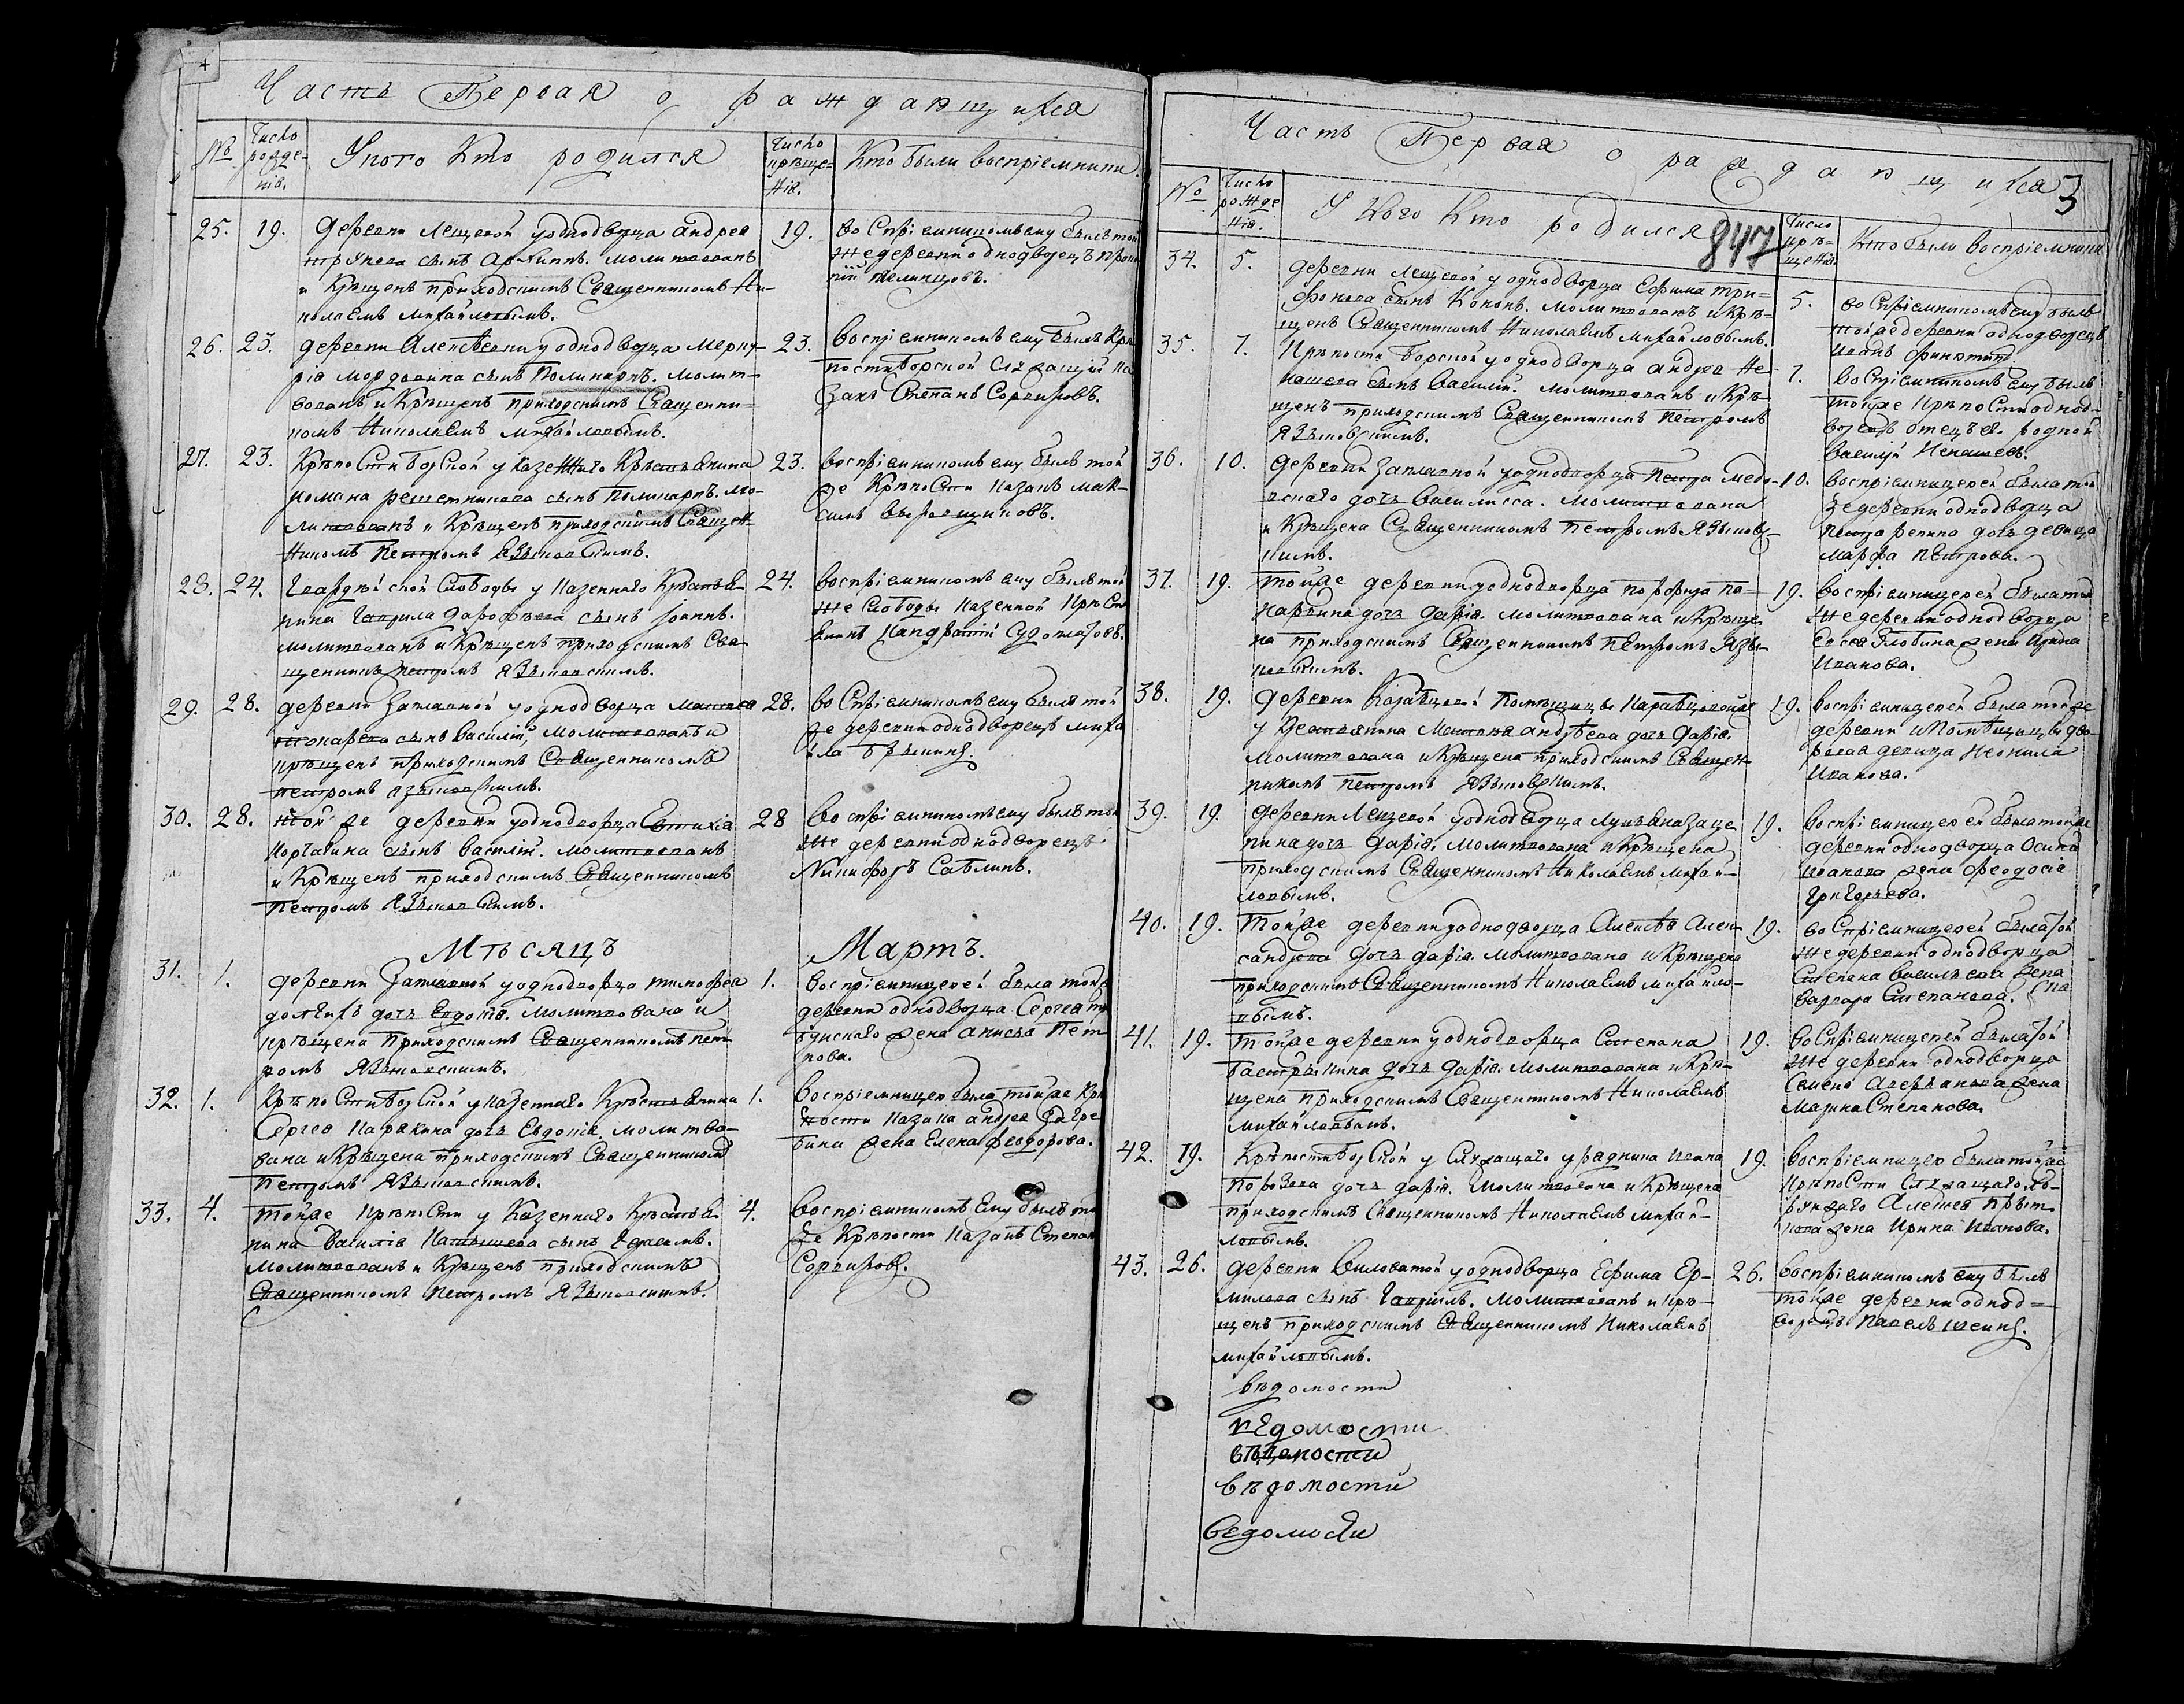 Часть Первая о раждающихся
№
Число рожде-нія.
У кого кто родился
Число креще-нія.
Кто были воспріемники.
25. 19.
деревни Лещевой у однодворца андрея
сынъ Архиппъ. молитвованъ
и крѣщенъ приходскимъ Священникомъ Ни-
колаемъ михайловымъ.
19.
воспріемникомъ ему былъ той
же деревни однодворецъ
26. 23.
деревни Алексѣевки у однодворца Мерку-
рія мордовина сынъ Поликарпъ. молит-
вованъ и крѣщенъ приходскимъ Священни-
комъ Николаемъ михайловымъ.
23.
воспріемникомъ ему былъ крѣ
пости борской Служащій ка
закъ Степанъ
27. 23.
Крѣпости борской у казеннаго крѣстьянина
романа решетникова сынъ Поликарпъ. мо-
литвованъ и крѣщенъ приходскимъ Священ-
никомъ Петромъ Языковскимъ.
23.
воспріемникомъ ему былъ той
же крѣпости казакъ мак-
симъ
28. 24.
Гвардѣйской Слободы у казеннаго крѣстья-
нина Гаврила дорофѣева сынъ Іоаннъ.
молитвованъ и крѣщенъ приходскимъ Свя-
щенникомъ петромъ Языковскимъ.
24.
воспріемникомъ ему былъ той
же Слободы казенной крѣсть
янинъ
29. 28.
деревни Заплавной у однодворца матвея
токарева сынъ василій, молитвованъ и
крѣщенъ приходскимъ Священникомъ
петромъ языковскимъ.
28.
воспріемникомъ ему былъ той
же деревни однодворецъ миха
ила
30. 28.
той же деревни у однодворца Евтихія
Корчагина сынъ василій. молитвованъ
и крѣщенъ приходскимъ Священникомъ
Петромъ Языковскимъ.
28
воспріемникомъ ему былъ той
же деревни однодворецъ
Никифоръ Саблинъ.
Мѣсяцъ Мартъ.
31. 1.
деревни Заплавной у однодворца тимофея
долгихъ дочь Евдокія. молитвована и
крѣщена приходскимъ Священникомъ пет-
ромъ Языковскимъ.
1.
воспріемницей была той
деревни однодворца Сергея
жена анисья Пет
рова.
32. 1.
Крѣпости борской у казеннаго крѣстьянина
Сергея Карякина дочь Евдокія. молитво-
вана и крѣщена приходскимъ Священникомъ
Петромъ Языковскимъ.
1.
воспріемницею была той же крѣ
пости казака андрея Загре
бина жена Елена феодорова.
33. 4.
той же крѣпости у казеннаго крѣстья-
нина василія сынъ Герасимъ.
молитвованъ и крѣщенъ приходскимъ
Священникомъ петромъ Языковскимъ.
4.
воспріемникомъ ему былъ той
же крѣпости казакъ Степанъ
3
847
Часть Первая о раждающихся
№
Число рожде нія.
У кого кто родился
Число крѣ-щенія.
Кто были воспріемники
34. 5.
деревни Лещевой у однодворца Ефима три-
фонова сынъ Кононъ. молитвованъ и крѣ-
щенъ Священникомъ Николаемъ михайловымъ.
5.
воспріемникомъ ему былъ
той же деревни однодворецъ
иванъ
35. 7.
Крѣпости борской у однодворца андрея Не-
нашева сынъ василій. молитвованъ и крѣ-
щенъ приходскимъ Священникомъ петромъ
Языковскимъ.
7.
воспріемникомъ ему былъ
той же крѣпости однод-
ворецъ отецъ его родной
василій Ненашевъ.
36. 10.
деревни Заплавной у однодворца петра медв-
дочь Василисса. молитвована
и крѣщена Священникомъ петромъ Языков-
скимъ.
10.
воспріемницей была той
же деревни однодворца
петра дочь девица
марфа петрова.
37. 19.
той же деревни у однодворца порфира по-
номарева дочь дарія. молитвована и крѣще-
на приходскимъ Священникомъ петромъ Язы-
ковскимъ.
19.
воспріемницей была той
же деревни однодворца
жена Ирина
иванова.
38. 19.
деревни Коравцевой помѣщицы Каравцовой
у крестьянина андрѣева дочь дарія.
молитвована и крѣщена приходскимъ Священ-
никомъ петромъ Языковскимъ.
19.
воспріемницей была той же
деревни и помѣщицы дво-
ровая девица Неонила
иванова.
39. 19.
деревни Лещевой у однодворца
дочь дарія. молитвована и крѣщена
приходскимъ Священникомъ Николаемъ михай-
ловымъ.
19.
воспріемницей была той же
деревни однодворца Осипа
иванова жена феодосія
григорьева.
40. 19.
той же деревни у однодворца Алексѣя Алек-
сандрова дочь дарія. молитвована и крѣщена
приходскимъ Священникомъ Николаемъ михайло-
вымъ.
19.
воспріемницей была той
же деревни однодворца
Степана васильева жена
варвара Степанова.
41. 19.
той же деревни у однодворца Степана
бастрыкина дочь дарія. молитвована и крѣ-
щена приходскимъ Священникомъ Николаемъ
михайловымъ.
19.
воспріемницей была той
же деревни однодворца
Семена Аверьянова жена
марина Степанова.
42. 19.
Крѣпости борской у Служащаго урядника ивана
порозова дочь дарія. молитвована и крѣщена
приходскимъ Священникомъ Николаемъ михай-
ловымъ.
19.
воспріемницею была той же
крѣпости служащаго
Алексея
жена Ирина иванова.
43. 26.
деревни Виловатой у однодворца Ефима Ер-
милова сынъ Гавріилъ. молитвованъ и крѣ-
щенъ приходскимъ Священникомъ Николаемъ
михайловымъ.
26.
воспріемникомъ ему былъ
той же деревни однод=
ворецъ Павелъ шеинъ.
вѣдомости
вѣдомости
вѣдомости
вѣдомости
ведомости